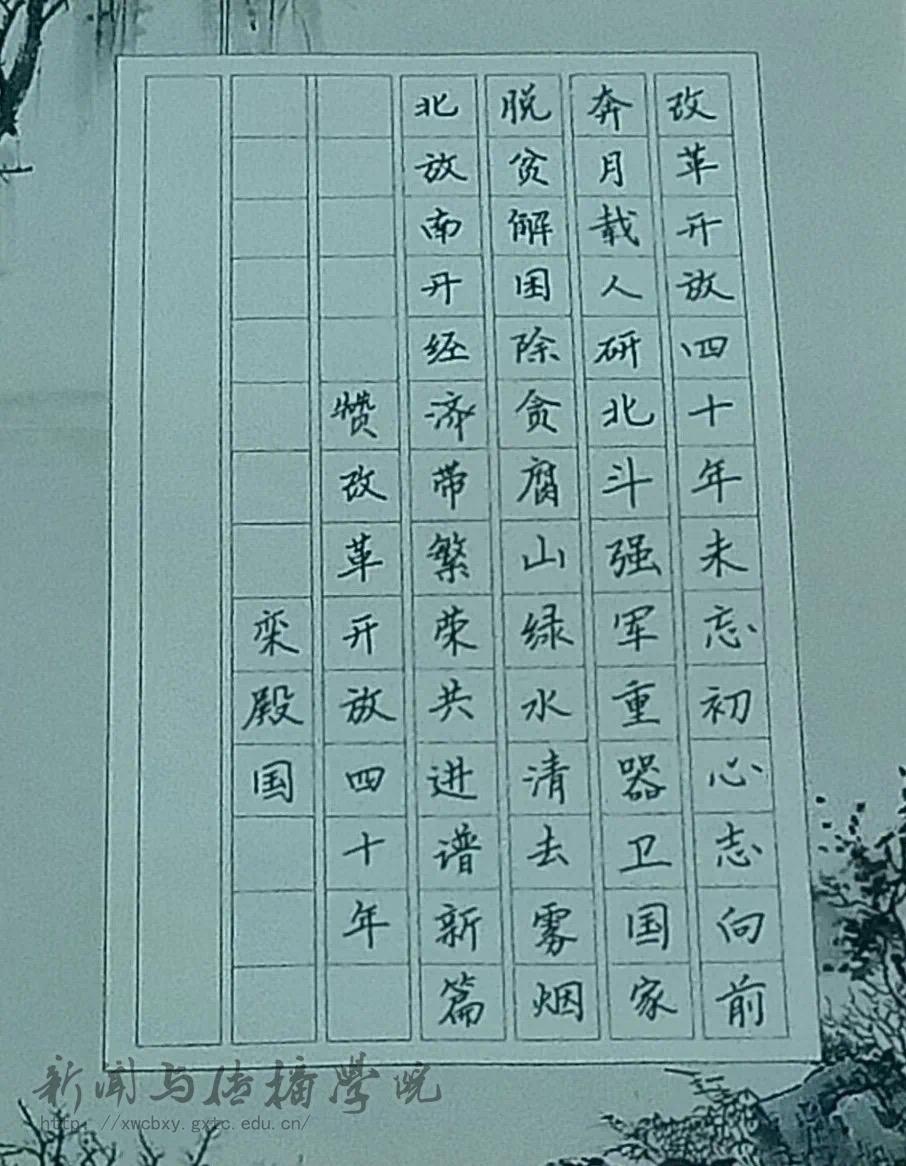 改革开放四十年未忘初心志向前
奔月载人研北斗强军重器卫国家
脱贫解困除贪腐山绿水清去雾烟
北放南开经济带繁荣共进谱新篇
赞改革开放四十年
栾殿国
新闻与传播学院
http://xwcbxy.gxtc.edu.cn/